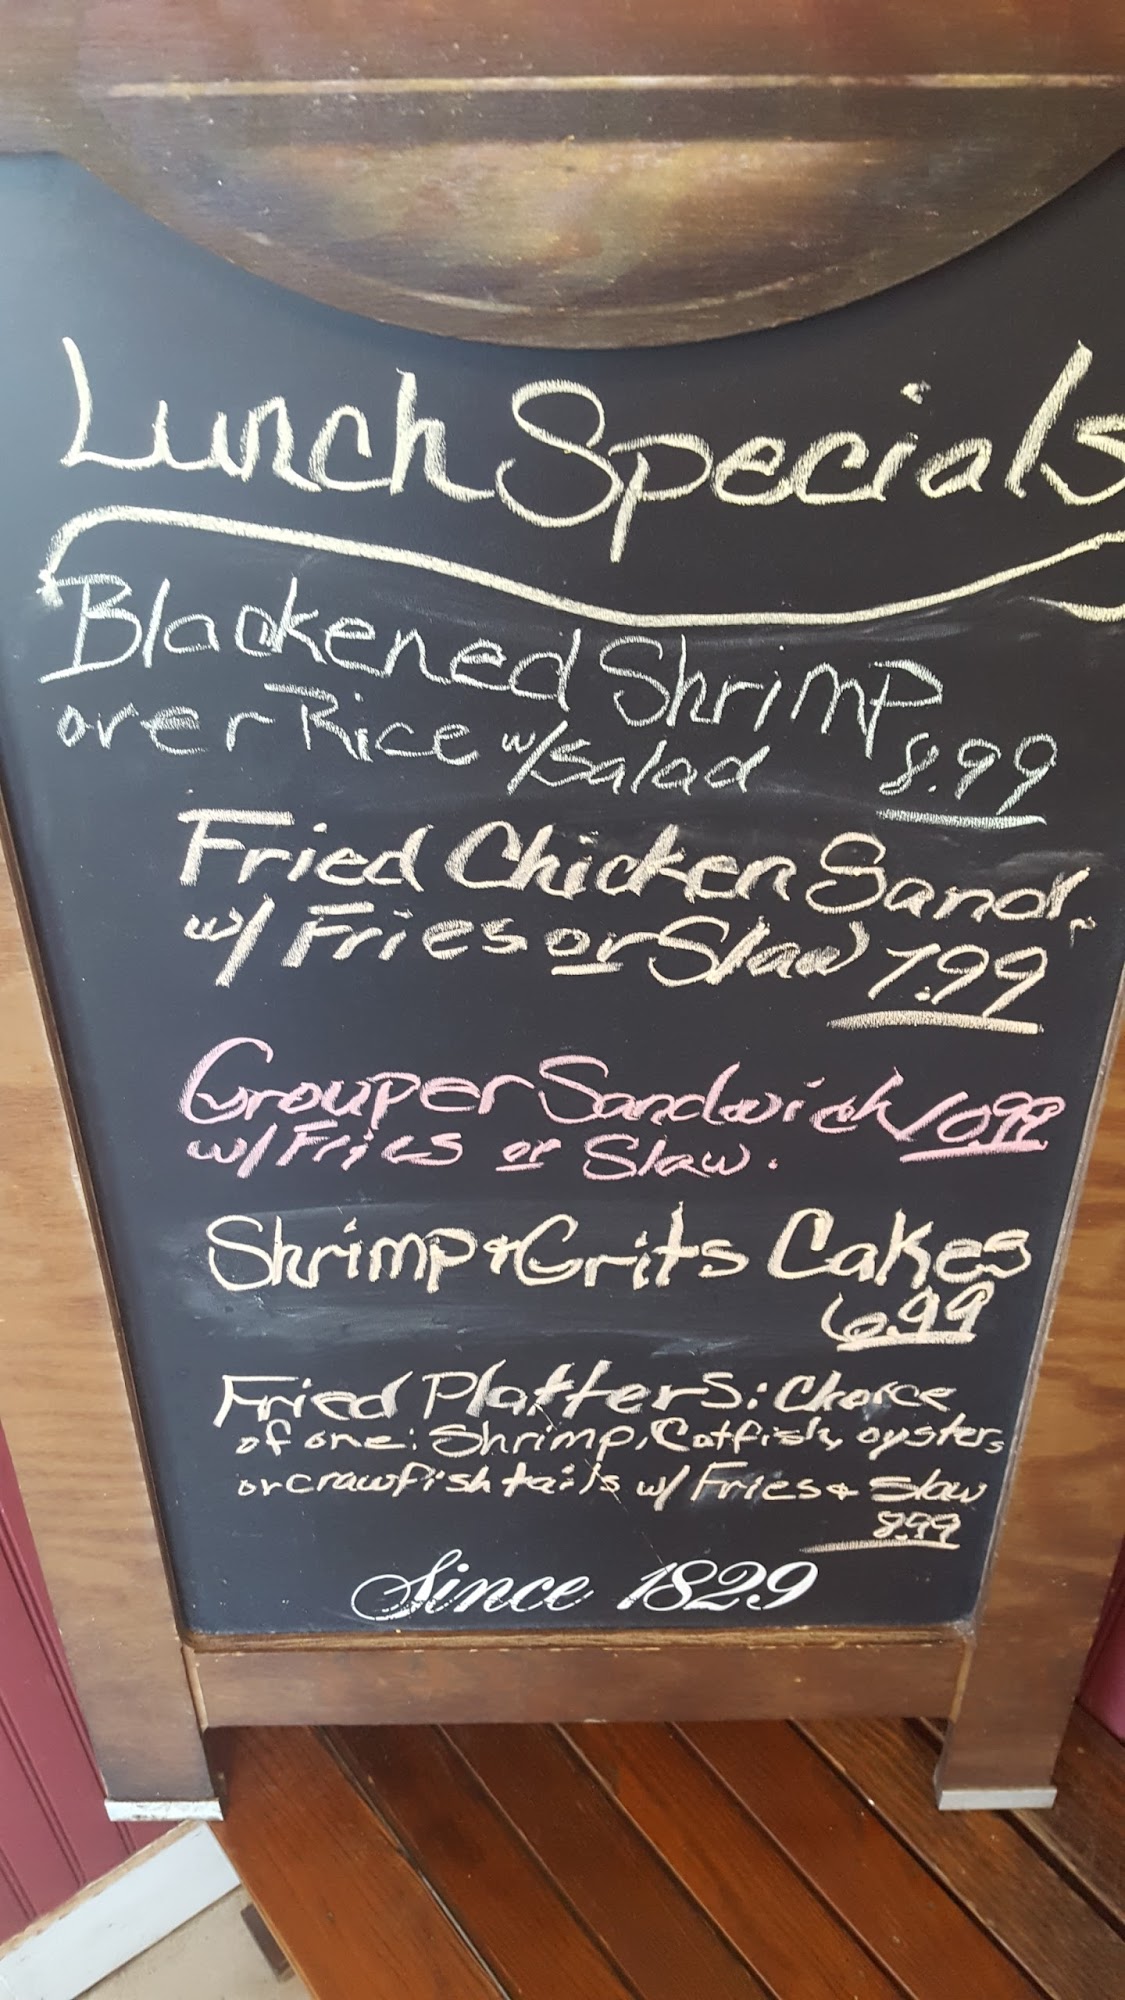 Lunch Specials
Blackened Shrimp
over Rice w/Salad 8.99
Fried Chicken Sand.
w/ Fries or Slaw 7.99
Grouper Sandwich 10.99
w/Fries or Slaw.
Shrimp & Grits Cakes
6.99
Fried Platters: Choice
of one: Shrimp, Catfish, oysters
or crawfish tails w/ Fries & Slaw
8.99
Since 1829